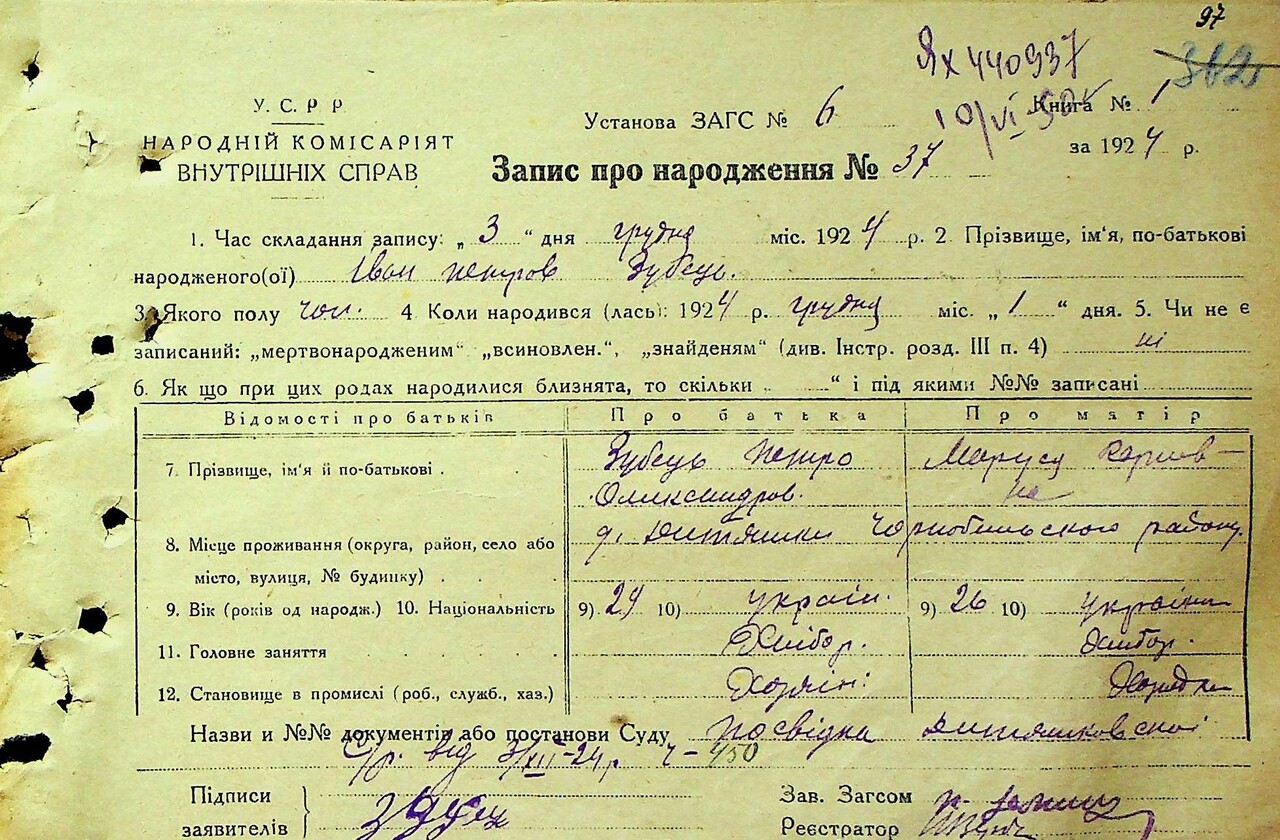 97
362
Ях 440937
У. С. Р Р
Установа ЗАГС № 6
10/VI 50 Книга № 1
НАРОДНІЙ КОМІСАРІЯТ
ВНУТРІШНІХ СПРАВ
за 1924 р.
Запис про народження № 37
1. Час складання запису: „ 3 “ дня грудня міс. 1924 р. 2. Прізвище, ім'я, по-батькові
народженого(ої) Іван Петров Зубець.
3. Якого полу чол. 4. Коли народився (лась): 1924 р. грудня міс. „ 1 “ дня. 5. Чи не є
записаний: „мертвонародженим“ „всиновлен.“, „знайденям“ (див. Інстр. розд. III п. 4) ні
6. Як що при цих родах народилися близнята, то скільки „ “ і під якими №№ записані
Відомості про батьків Про батька Про матір
7. Прізвище, ім'я й по-батькові Зубець Петро Маруся
Олександров. на
8. Місце проживання (округа, район, село або д. Дитятки Чорнобильського району.
місто, вулиця, № будинку)
9. Вік (років од народж.) 10. Національність 9) 29 10) україн. 9) 26 10) українка
11. Головне заняття Хлібор. Хлібор.
12. Становище в промислі (роб., служб., хаз.) Хозяін: Хозяйка
Назви и №№ документів або постанови Суду Посвідка Дитятковскої
С/р. від 3/XII-24 р ч- 450
Підписи
заявителів
Зав. Загсом
Реєстратор